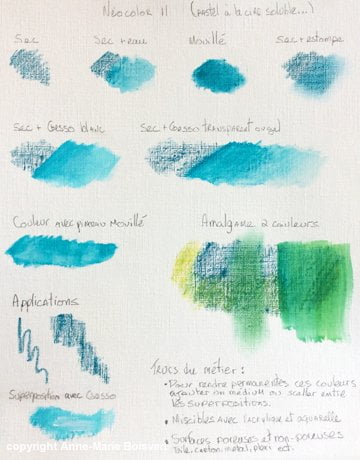 Neocolor II (pastel à la cire soluble...)
Sec Sec + eau Mouillé Sec + estompe
Sec + Gesso blanc Sec + Gesso transparent ou gel
Couleur avec pinceau mouillé Amalgame 2 couleurs
Applications
Superposition avec Gesso
Trucs du métier :
• Pour rendre permanentes ces couleurs
ajouter un médium ou sceller entre
les superpositions.
• Miscibles avec l'acrylique et aquarelle
• Surfaces poreuses et non-poreuses
Toile, carton, métal, plexi etc.
copyright Anne-Marie Boisvert